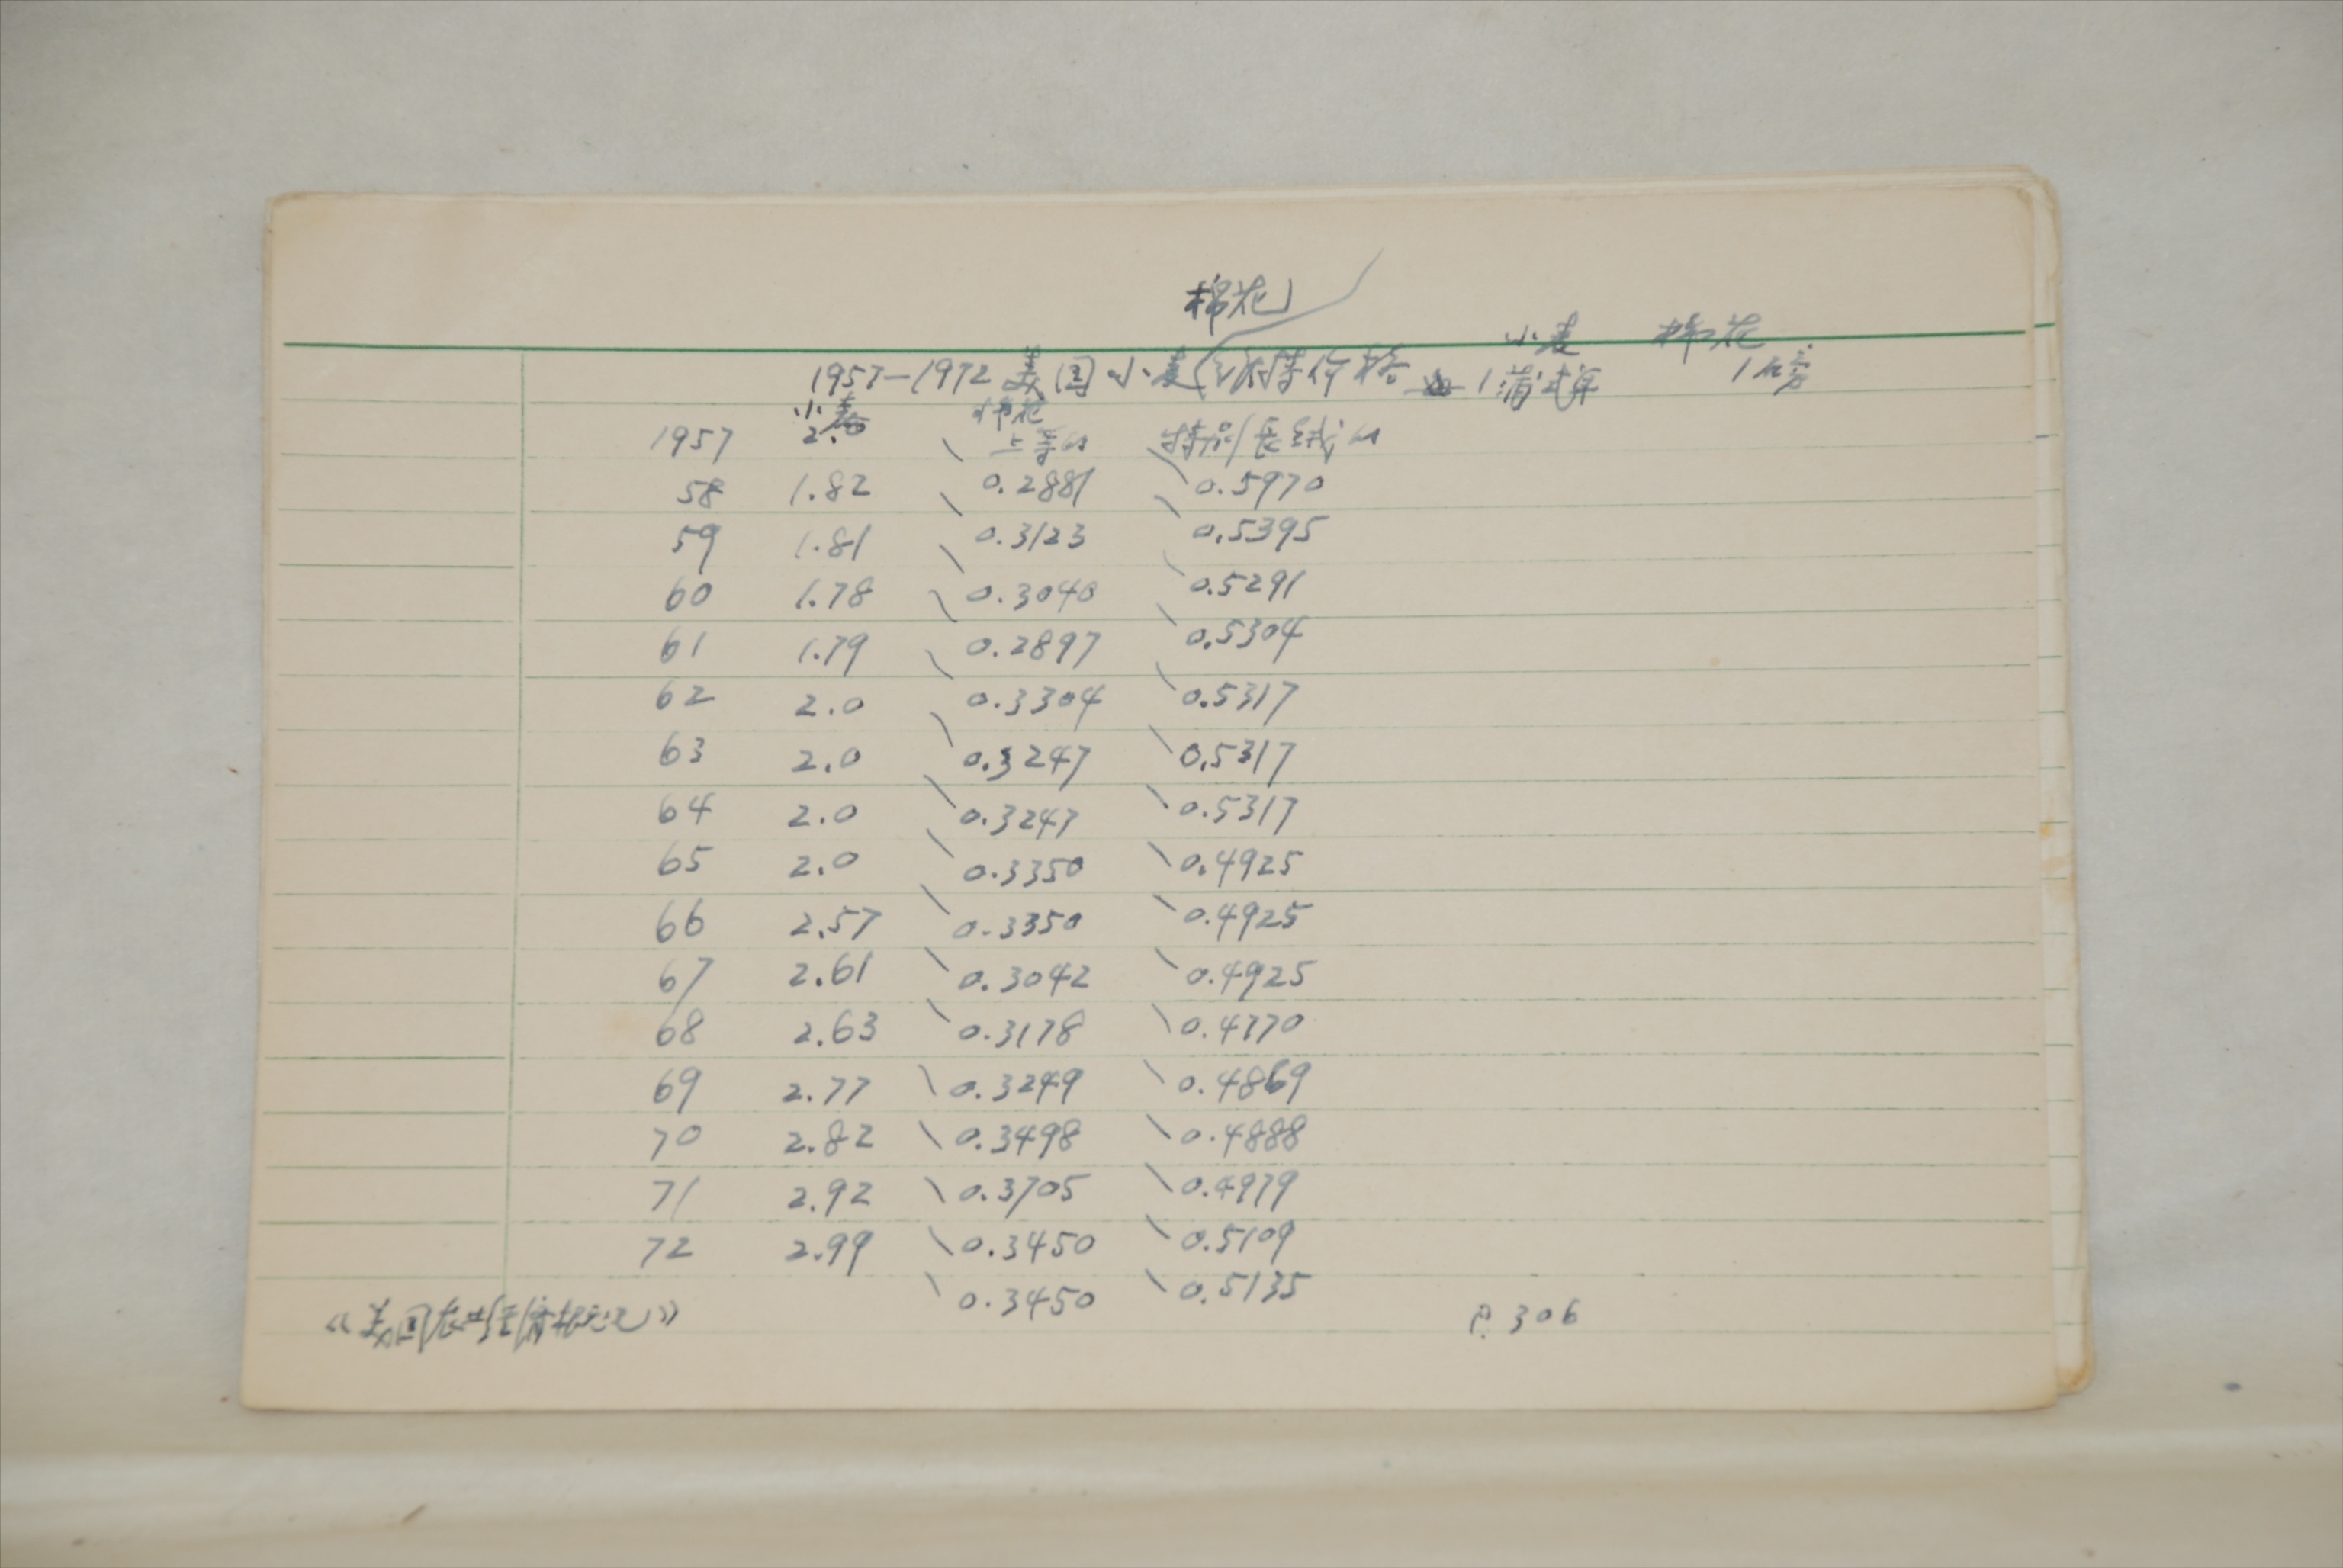 棉花
小麦 棉花
1957—1972美国小麦 维持价格 1蒲式耳 1磅
小麦 棉花
1957 2.0 上等的 特别长绒的
58 1.82 0.2881 0.5970
59 1.81 0.3123 0.5395
60 1.78 0.3040 0.5291
61 1.79 0.2897 0.5304
62 2.0 0.3304 0.5317
63 2.0 0.3247 0.5317
64 2.0 0.3247 0.5317
65 2.0 0.3350 0.4925
66 2.57 0.3350 0.4925
67 2.61 0.3042 0.4925
68 2.63 0.3178 0.4770
69 2.77 0.3249 0.4869
70 2.82 0.3498 0.4888
71 2.92 0.3705 0.4979
72 2.99 0.3450 0.5109
0.3450 0.5135
《美国农业经济概况》 P.306